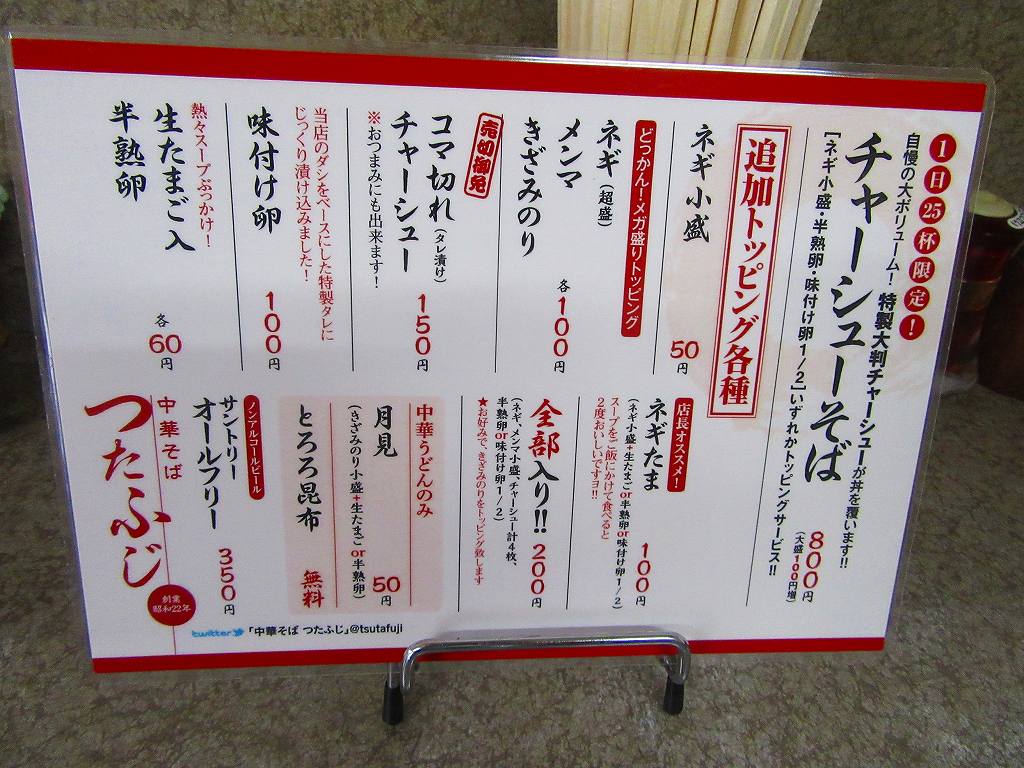 1日25杯限定!
自慢の大ボリューム!特製大判チャーシューが丼を覆います!!
チャーシューそば
800円
(大盛100円増)
[ネギ小盛・半熟卵・味付け卵1/2]いずれかトッピングサービス!!
追加トッピング各種
ネギ小盛
50円
どっかん!メガ盛りトッピング
ネギ(超盛)
メンマ
きざみのり
各100円
売切御免
コマ切れ(タレ漬け)
チャーシュー
150円
※おつまみにも出来ます!
当店のダシをベースにした特製タレに
じっくり漬け込みました!
味付け卵
100円
熱々スープぶっかけ!
生たまご入
半熟卵
各60円
店長オススメ!
ネギたま
100円
(ネギ小盛+生たまごor半熟卵or味付け卵1/2)
スープをご飯にかけて食べると
2度おいしいですヨ!!
全部入り!!
200円
(ネギ、メンマ小盛、チャーシュー計4枚、
半熟卵or味付け卵1/2)
★お好みで、きざみのりをトッピング致します
中華うどんのみ
月見
50円
(きざみのり小盛+生たまごor半熟卵)
とろろ昆布
無料
ノンアルコールビール
サントリー
オールフリー
350円
中華そば
つたふじ
創業
昭和22年
twitter「中華そば つたふじ」@tsutafuji